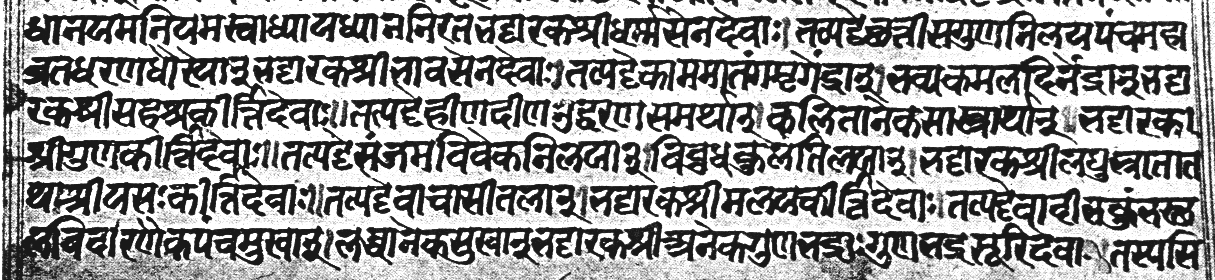 धानयमनियमस्वाध्यायध्याननिरतभट्टारकश्रीधर्म्मसेनदेवाः॥ तत्पट्टे छत्रीसगुणनिलयपंचमहा
व्रतधरणधौरेयान् भट्टारकश्रीभावसेनदेवाः॥ तत्पट्टे काममातंगमृगेंद्रान् भव्यकमलदिनेंद्रान् भट्टा
रकश्रीसहश्रकीर्त्तिदेवाः॥ तत्पट्टे हीणदीण उद्धरणसमर्थान् कलितानेकसास्त्रार्थान् भट्टारक
श्रीगुणकीर्त्तिदेवाः॥ तत्पट्टे संजमविवेकनिलयान् विबुधकुलतिलकान् भट्टारकश्रीलघुभ्रातात
थाश्रीयसःकीर्त्तिदेवाः॥ तत्पट्टे वाचासीतलान् भट्टारकश्रीमलयकीर्त्तिदेवाः॥ तत्पट्टे वादी
विदारणैकपंचमुखान् लब्धानेकसुखान् भट्टारकश्रीअनेकगुणभद्रः गुणभद्रसूरिदेवा तस्य सि